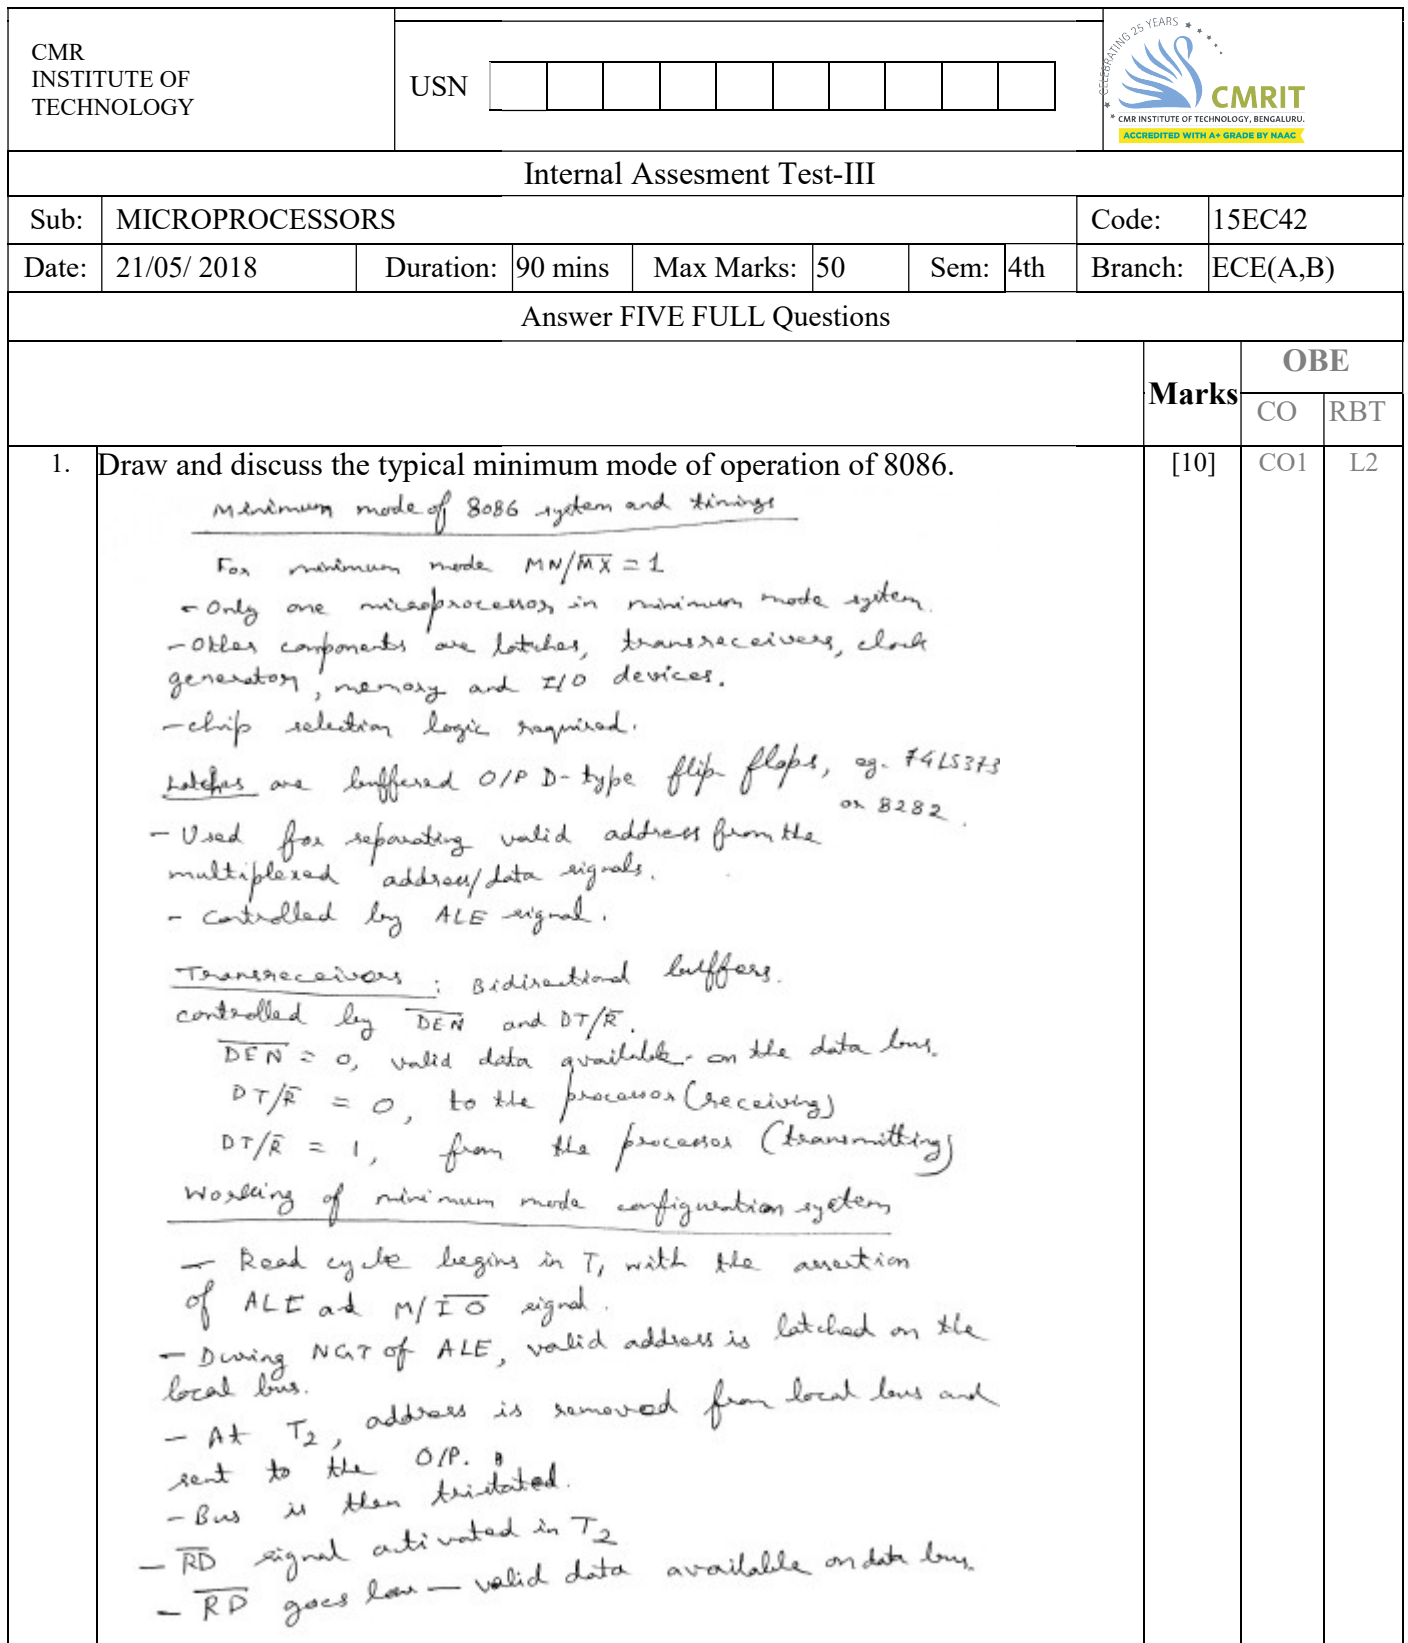 CMR
INSTITUTE OF
TECHNOLOGY
USN
CELEBRATING 25 YEARS
CMRIT
CMR INSTITUTE OF TECHNOLOGY, BENGALURU.
ACCREDITED WITH A+ GRADE BY NAAC
Internal Assesment Test-III
Sub: MICROPROCESSORS Code: 15EC42
Date: 21/05/ 2018 Duration: 90 mins Max Marks: 50 Sem: 4th Branch: ECE(A,B)
Answer FIVE FULL Questions
Marks OBE
CO RBT
1. Draw and discuss the typical minimum mode of operation of 8086. [10] CO1 L2
Minimum mode of 8086 system and timings
For minimum mode MN/M̅X̅ = 1
- Only one microprocessor in minimum mode system.
- Other components are latches, transreceivers, clock
generator, memory and I/O devices.
- chip selection logic required.
Latches are buffered O/P D-type flip flops, eg. 74LS373
or 8282.
- Used for separating valid address from the
multiplexed address/data signals.
- controlled by ALE signal.
Transreceivers : Bidirectional buffers.
controlled by D̅E̅N̅ and DT/R̅.
D̅E̅N̅ = 0, valid data available on the data bus.
DT/R̅ = 0, to the processor (receiving)
DT/R̅ = 1, from the processor (transmitting)
Working of minimum mode configuration system
- Read cycle begins in T₁ with the assertion
of ALE and M/I̅O̅ signal.
- During NGT of ALE, valid address is latched on the
local bus.
- At T₂, address is removed from local bus and
sent to the O/P.
- Bus is then tristated.
- R̅D̅ signal activated in T₂
- R̅D̅ goes low - valid data available on data bus.